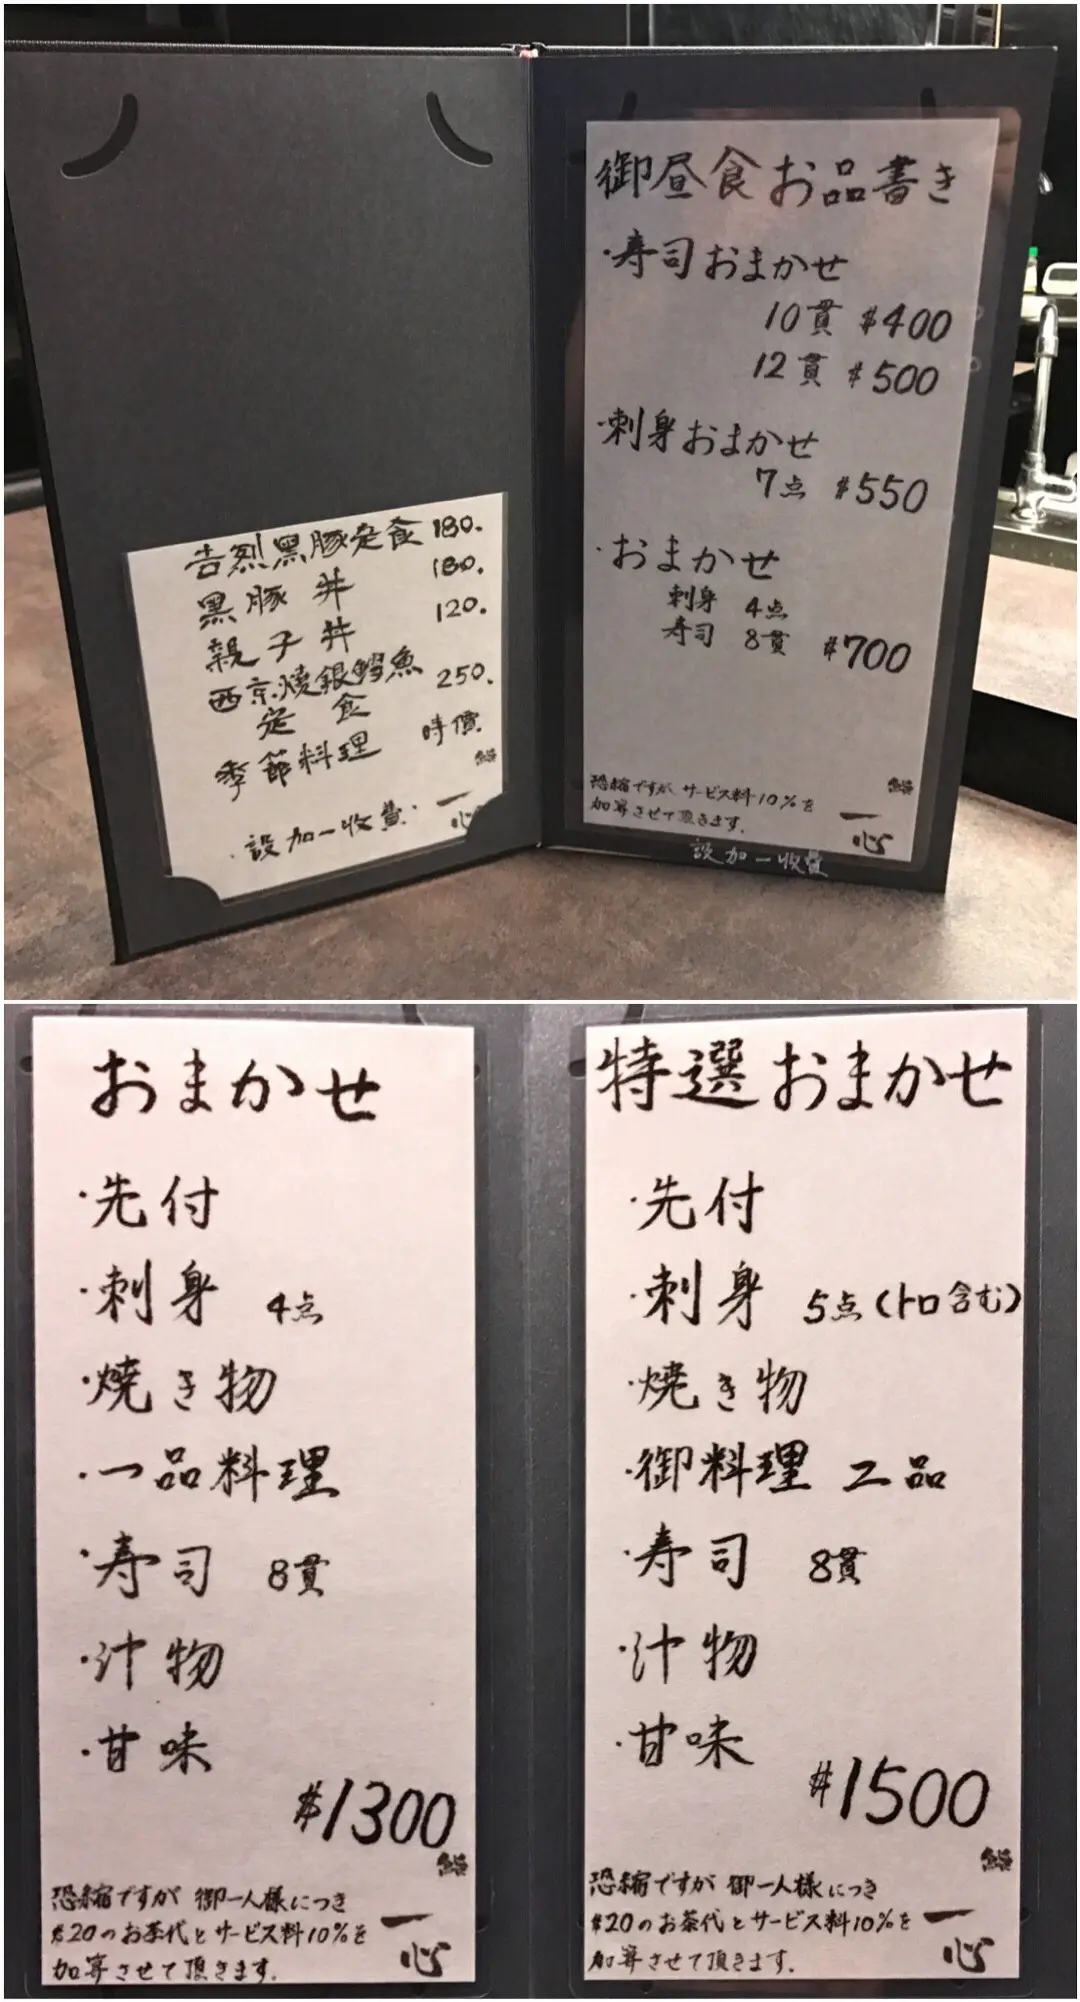 吉烈黑豚定食 180.
黑豚丼 180.
親子丼 120.
西京燒銀鱈魚
定食 250.
季節料理 時價
・設加一收費
一心
御昼食お品書き
・寿司おまかせ
10貫 $400
12貫 $500
・刺身おまかせ
7点 $550
・おまかせ
刺身 4点
寿司 8貫 $700
恐縮ですが、サービス料10%を
加算させて頂きます.
一心
設加一收費
おまかせ
・先付
・刺身 4点
・焼き物
・一品料理
・寿司 8貫
・汁物
・甘味
$1300
恐縮ですが 御一人様につき
$20のお茶代とサービス料10%を
加算させて頂きます.
一心
特選おまかせ
・先付
・刺身 5点(トロ含む)
・焼き物
・御料理 二品
・寿司 8貫
・汁物
・甘味
$1500
恐縮ですが 御一人様につき
$20のお茶代とサービス料10%を
加算させて頂きます.
一心